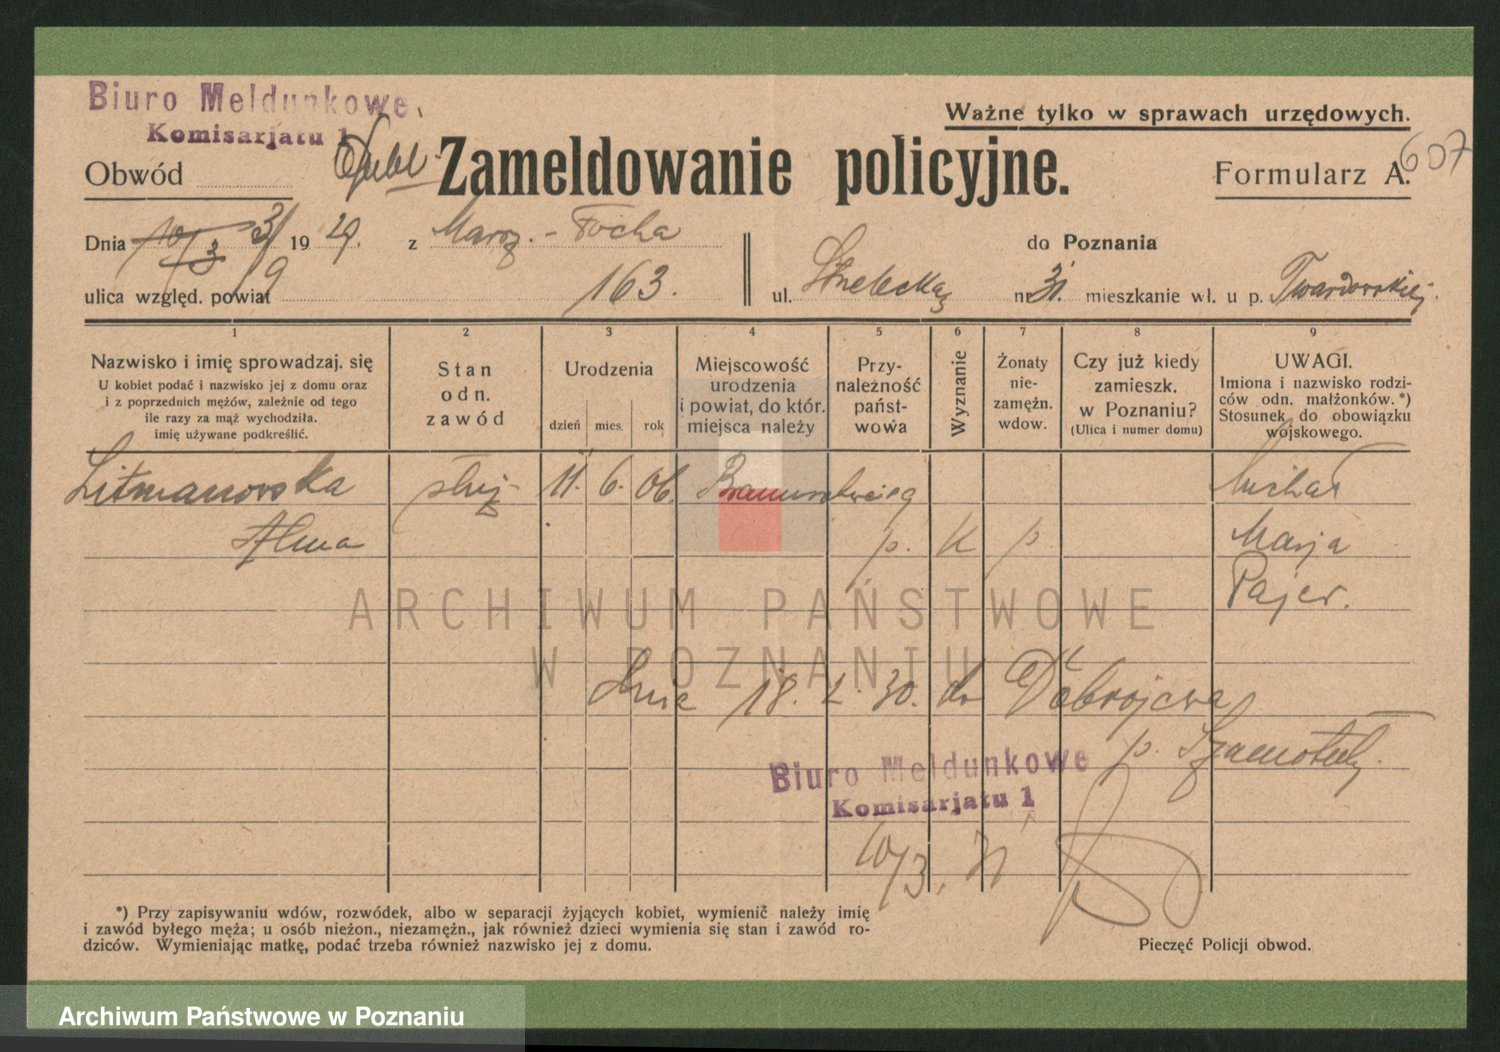 Biuro Meldunkowe
Komisarjatu 1
Ważne tylko w sprawach urzędowych.
Obwód
Zameldowanie policyjne.
Formularz A.
607
Dnia 10/3 3/9 1929. z Marsz.-Focha
do Poznania
ulica względ. powiat 163.
ul. Strzelecka nr 31. mieszkanie wł. u p. Twardowskiej.
1 2 3 4 5 6 7 8 9
Nazwisko i imię sprowadzaj. się
U kobiet podać i nazwisko jej z domu oraz
i z poprzednich mężów, zależnie od tego
ile razy za mąż wychodziła.
imię używane podkreślić.
Stan
odn.
zawód
Urodzenia
dzień mies. rok
Miejscowość
urodzenia
i powiat, do któr.
miejsca należy
Przy-
należność
państ-
wowa
Wyznanie
Żonaty
nie-
zamężn.
wdow.
Czy już kiedy
zamieszk.
w Poznaniu?
(Ulica i numer domu)
UWAGI.
Imiona i nazwisko rodzi-
ców odn. małżonków.*)
Stosunek do obowiązku
wojskowego.
Litmanowska służ. 11. 6. 06. Braunschweig Michał
Alma p. K p. Marja
Pajer.
ARCHIWUM PAŃSTWOWE
W POZNANIU
dnia 18. 2. 30. do Dobrojewa
p. Szamotuły.
Biuro Meldunkowe
Komisarjatu 1
10/3. 31
*) Przy zapisywaniu wdów, rozwódek, albo w separacji żyjących kobiet, wymienić należy imię
i zawód byłego męża; u osób nieżon., niezamężn., jak również dzieci wymienia się stan i zawód ro-
dziców. Wymieniając matkę, podać trzeba również nazwisko jej z domu.
Pieczęć Policji obwod.
Archiwum Państwowe w Poznaniu